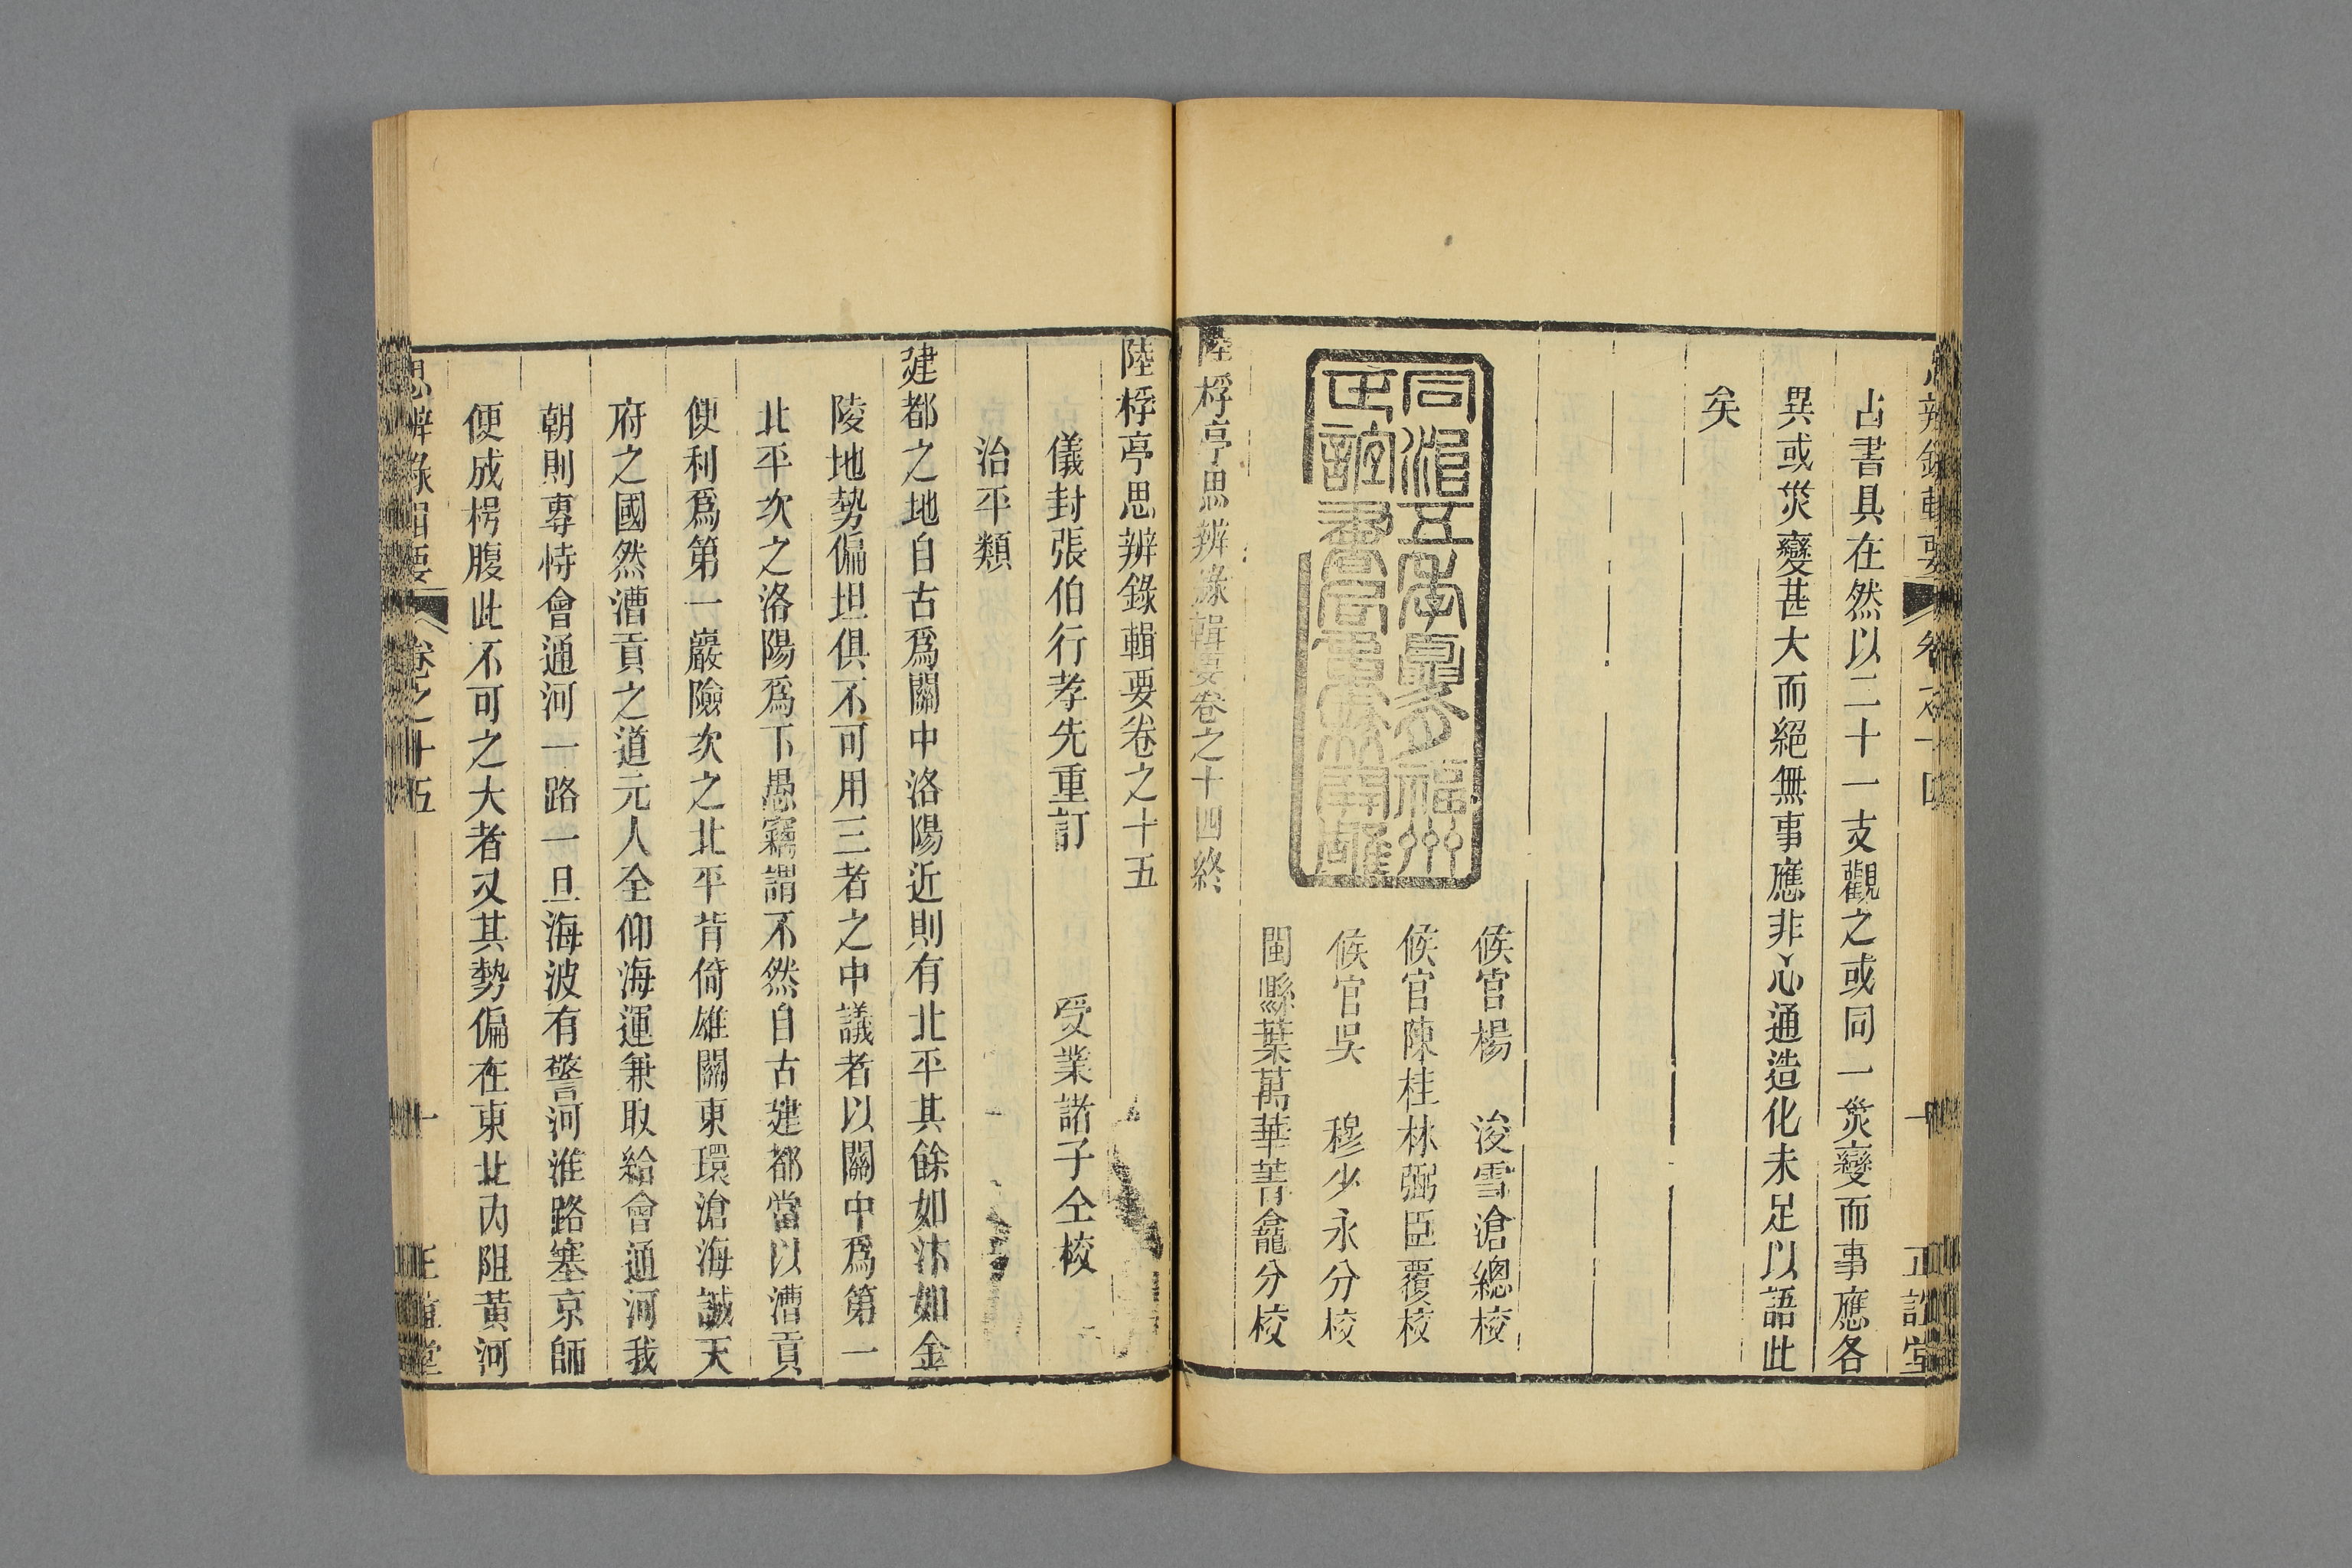 占書具在然以二十一支觀之或同一災變而事應各
異或災變甚大而絕無事應非心通造化未足以語此
矣
同治五年夏月福州
正誼書局重校開雕
候官楊 浚雪滄總校
候官陳桂林弼臣覆校
候官吳 穆少永分校
閩縣葉萬華菁龕分校
陸桴亭思辨錄輯要卷之十四終
陸桴亭思辨錄輯要卷之十五
儀封張伯行孝先重訂 受業諸子仝校
治平類
建都之地自古爲關中洛陽近則有北平其餘如汴如金
陵地勢偏坦俱不可用三者之中議者以關中爲第一
北平次之洛陽爲下愚竊謂不然自古建都當以漕貢
便利爲第一巖險次之北平背倚雄關東環滄海誠天
府之國然漕貢之道元人全仰海運兼取給會通河我
朝則專恃會通河一路一旦海波有警河淮路塞京師
便成枵腹此不可之大者又其勢偏在東北內阻黃河
思辨錄輯要 卷之十五 一 正誼堂